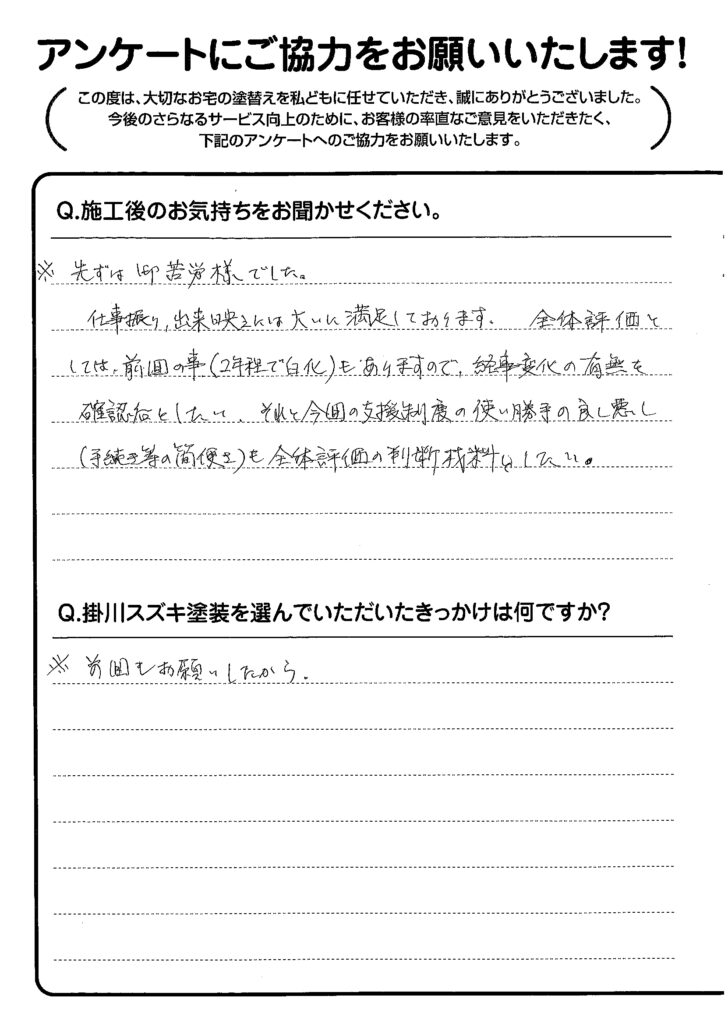 アンケートにご協力をお願いいたします!
この度は、大切なお宅の塗替えを私どもに任せていただき、誠にありがとうございました。
今後のさらなるサービス向上のために、お客様の率直なご意見をいただきたく、
下記のアンケートへのご協力をお願いいたします。
Q.施工後のお気持ちをお聞かせください。
※ 先ずは御苦労様でした。
仕事振り,出来映えには大いに満足しております. 全体評価と
しては、前回の事(2年程で白化)もありますので、経年変化の有無を
確認后としたい、それと今回の支援制度の使い勝手の良し悪し
(手続き等の簡便さ)も全体評価の判断材料としたい。
Q.掛川スズキ塗装を選んでいただいたきっかけは何ですか?
※ 前回もお願いしたから.